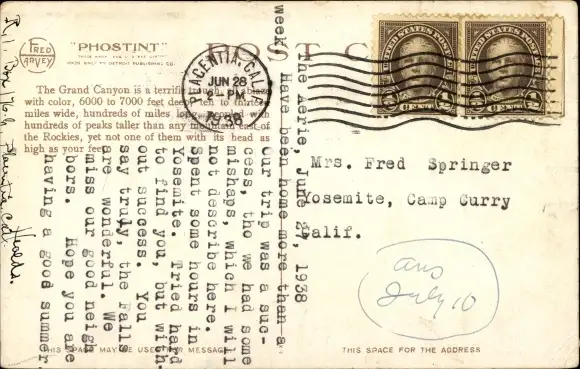 FRED
HARVEY
"PHOSTINT"
MADE ONLY BY DETROIT PUBLISHING CO.
POST C
The Grand Canyon is a terrific trough, ablaze
with color, 6000 to 7000 feet deep, ten to thirteen
miles wide, hundreds of miles long,
hundreds of peaks taller than any mountain east of
the Rockies, yet not one of them with its head as
high as your feet.
PLACENTIA, CAL.
JUN 28
PM
1938
UNITED STATES POSTAGE
UNITED STATES POSTAGE
Mrs. Fred Springer
Yosemite, Camp Curry
Calif.
ans
July 10
The Aerie, June 27, 1938
Have been home more than a
week.
Our trip was a suc-
cess, tho we had some
mishaps, which I will
not describe here.
Spent some hours in
Yosemite. Tried hard
to find you, but with-
out success. You
say truly, the Falls
are wonderful. We
miss our good neigh
bors. Hope you are
having a good summer.
R.1, Box
Placentia, Cal.
THIS SPACE MAY BE USED FOR MESSAGE
THIS SPACE FOR THE ADDRESS